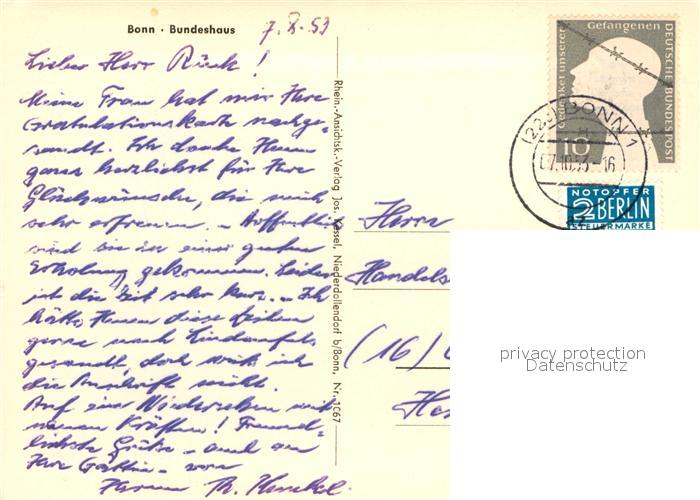 Bonn · Bundeshaus
7.X.53
Lieber Herr Rück!
Meine Frau hat mir Ihre
Gratulationskarte nachge-
sandt. Ich danke Ihnen
ganz herzlichst für Ihre
Glückwünsche, die mich
sehr erfreuen. – Hoffentlich
sind Sie in einer guten
Erholung gekommen. Leider
ist die Zeit sehr kurz. – Ich
hätte Ihnen diese Zeilen
gerne nach Lindenfels
gesandt, doch weiß ich
die Anschrift nicht.
Auf ein Wiedersehen mit
neuen Kräften! Freund-
lichste Grüße – auch an
Ihre Gattin – von
Ihrem Th.
Rhein.-Ansichtsk.-Verlag Jos. Kessel, Niederdollendorf b/Bonn, Nr. 1067
Gedenket unserer Gefangenen
DEUTSCHE BUNDESPOST
10
(22c) BONN 1
07.10.53-16
NOTOPFER
2 BERLIN
STEUERMARKE
Herrn
Handels
(16)
privacy protection
Datenschutz